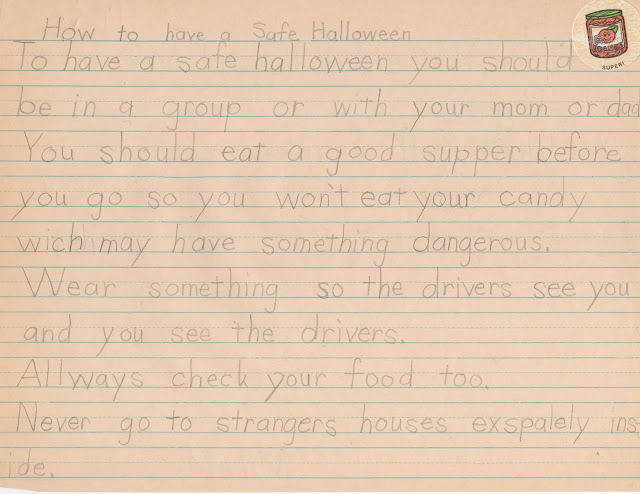 How to have a Safe Halloween
To have a safe halloween you should
be in a group or with your mom or dad
You should eat a good supper before
you go so you won't eat your candy
wich may have something dangerous.
Wear something so the drivers see you
and you see the drivers.
Allways check your food too.
Never go to strangers houses exspalely ins-
ide.
SUPER!